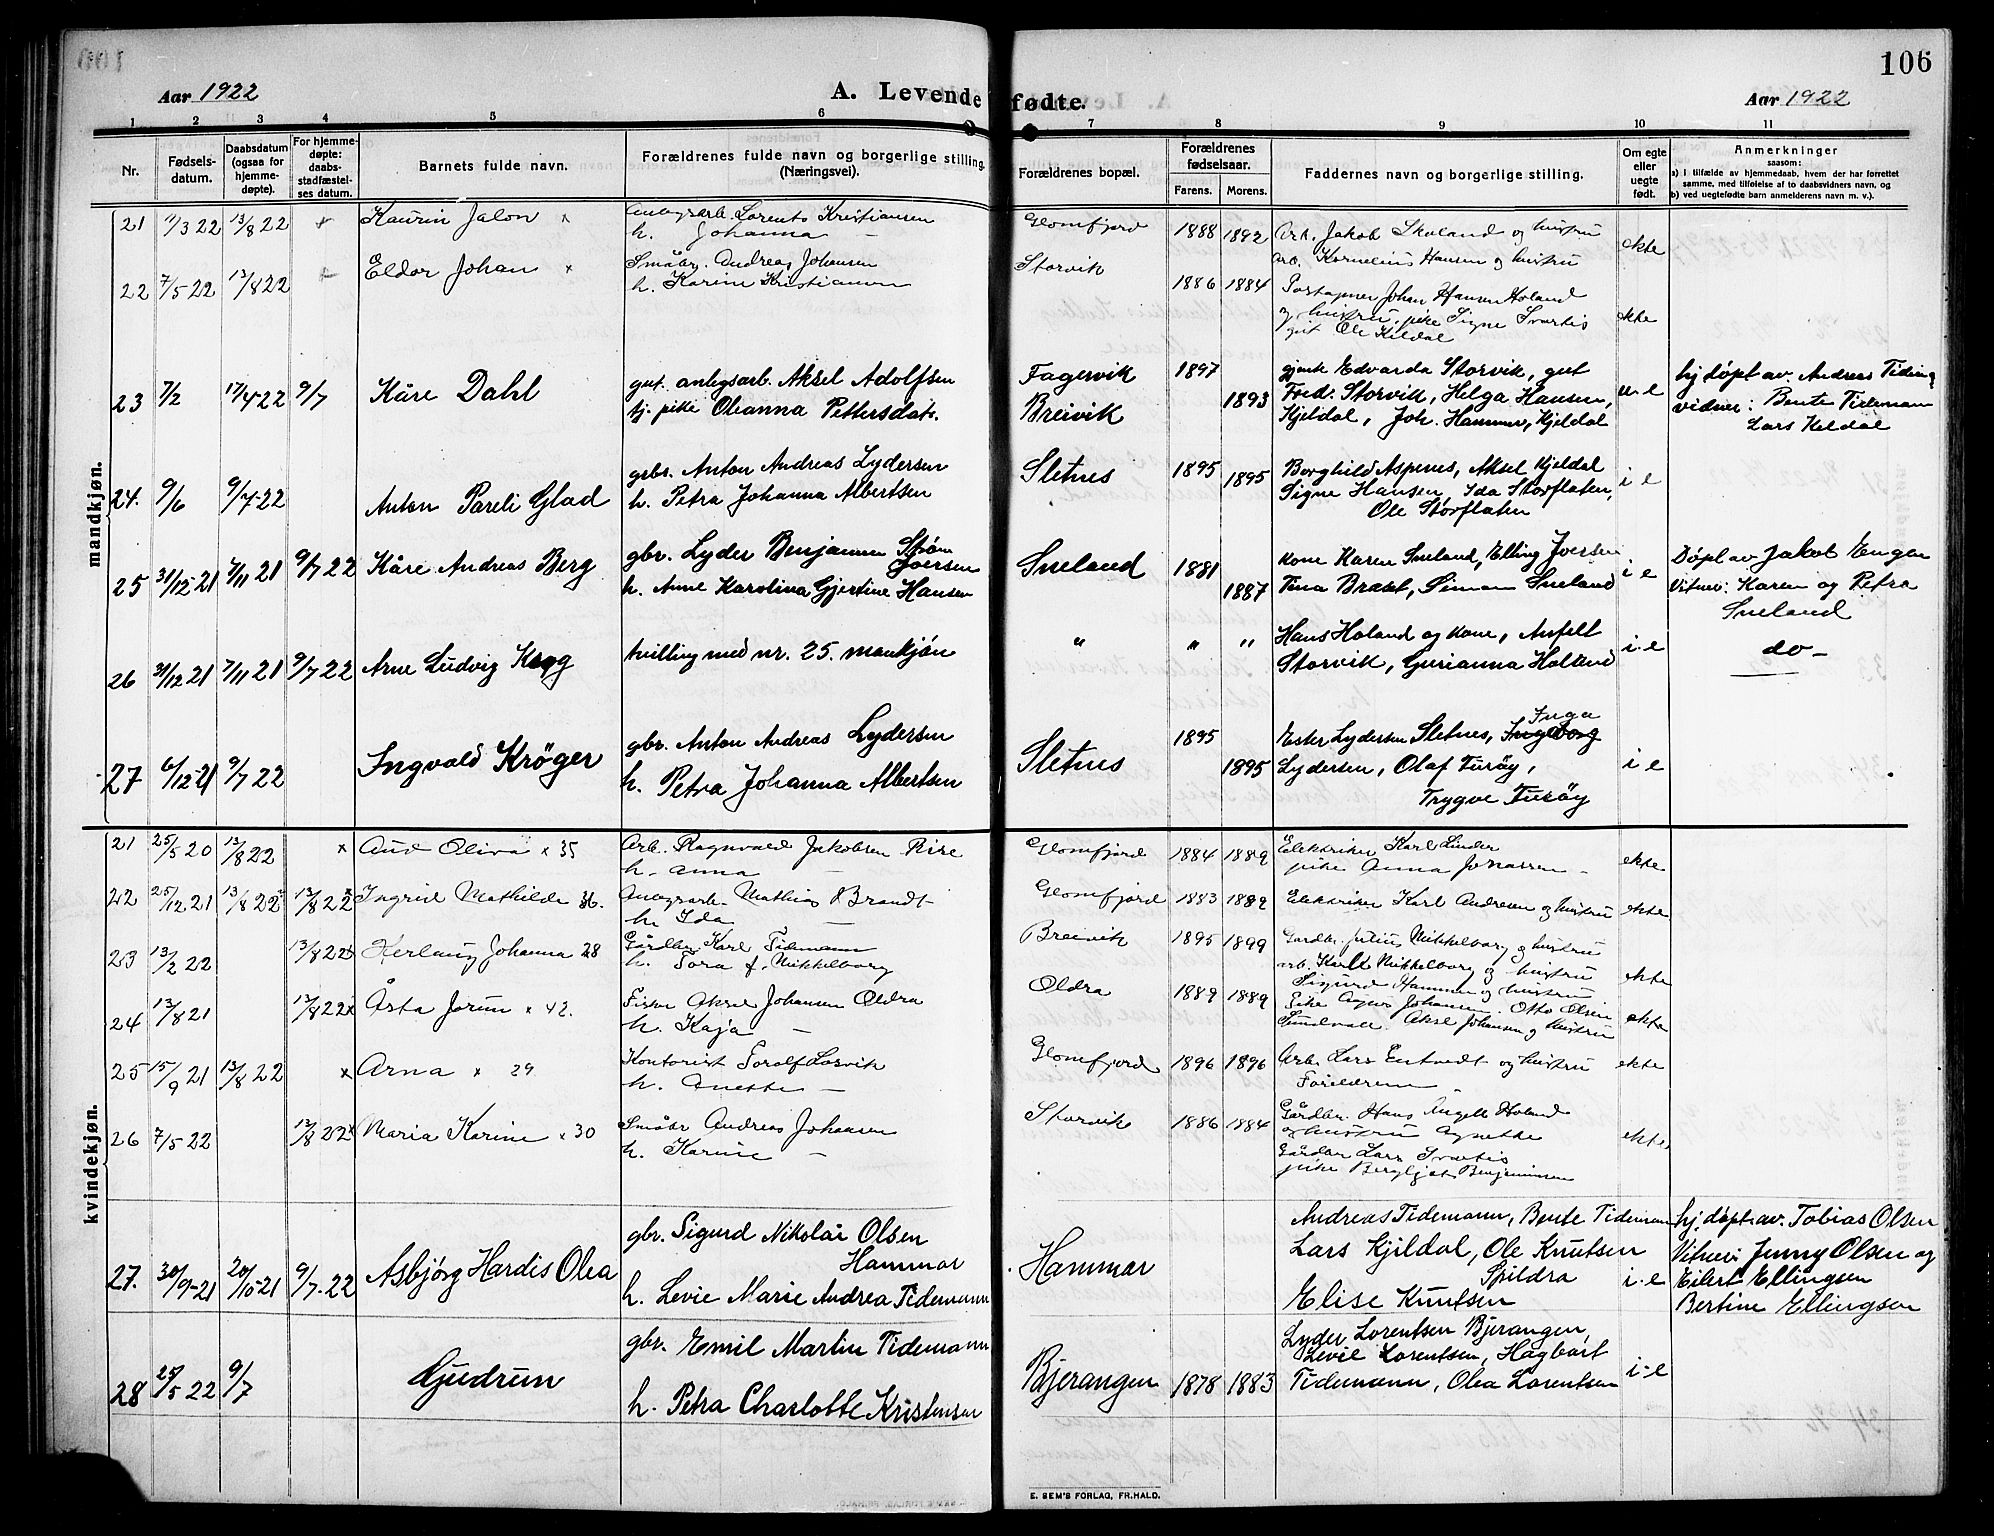 106
Aar 1922
A. Levende fødte.
Aar 1922
1 2 3 4 5 6 7 8 9 10 11
Nr.
Fødsels-
datum.
Daabsdatum
(ogsaa for
hjemme-
døpte).
For hjemme-
døpte:
daabs-
stadfæstel-
ses datum.
Barnets fulde navn.
Forældrenes fulde navn og borgerlige stilling.
(Næringsvei).
Forældrenes bopæl.
Forældrenes
fødselsaar.
Farens. Morens.
Faddernes navn og borgerlige stilling.
Om egte
eller
uegte
født.
Anmerkninger
saasom:
a) i tilfælde av hjemmedaab, hvem der har forrettet
samme, med tilføielse af to daabsvidners navn, og
b) ved uegtefødte barn anmelderens navn m. v.).
mandkjøn.
21 11/3 22 13/8 22 Kaurin Jalon x Anlegsarb. Lorents Kristiansen
h. Johanna —
Glomfjord 1888 1892 Arb. Jakob Skoland og hustru
arb. Kornelius Hansen og hustru
ekte
22 7/5 22 13/8 22 Eldor Johan x Småbr. Andreas Johansen
h. Karine Kristiansen
Storvik 1886 1884 Poståpner Johan Hansen Holand
og hustru, pike Signe Svartis
gut Ole Kildal
ekte
23 7/2 17/4-22 9/7 Kåre Dahl gut. anlegsarb. Aksel Adolfsen
tj. pike Oleanna Pettersdatr.
Fagervik 1897
Breivik 1893
gjente Edvarda Storvik, gut
Fred. Storvik, Helga Hansen,
Kjeldal, Joh. Hammer, Kjeldal
u-e
hj døpt av. Andreas Tidem
vidner: Bente Tidemann
Lars Keldal
24. 9/6 9/7-22 Anton Pareli Glad grbr. Anton Andreas Lydersen
h. Petra Johanna Albertsen
Sletnes 1895 1895 Borghild Aspenes, Aksel Kjeldal
Signe Hansen, Ida Storflaten,
Ole Storflaten
i e
25 31/12-21 7/11 21 9/7 22 Kåre Andreas Berg gbr. Lyder Benjamin Strøm
Joersen
h. Anne Karolina Gjertine Hansen
Sneland 1881 1887 kone Karen Sneland, Elling Joersen
Tina Braset, Simon Sneland
i e
Døpt av Jakob Engen
Vitner: Karen og Petra
Sneland
26 31/12 21 7/11 21 9/7 22 Arne Ludvig Krog tvilling med nr. 25. mankjøn
" " " Hans Holand og kone, Anfelt
Storvik, Gurianna Holand
i-e do —
27 6/12 21 9/7 22 Ingvald Krøger gbr. Anton Andreas Lydersen
h. Petra Johanna Albertsen
Sletnes 1895 1895 Inga
Ester Lydersen Sletnes, Ingeborg
Lydersen, Olaf Turøy,
Trygve Turøy
i e
kvindekjøn.
21 25/5 20 13/8 22 x Aud Oliva x 35 Arb. Ragnvald Jakobsen Rise
h. Anna —
Glomfjord 1884 1889 Elektriker Karl Linder
pike Anna Jonassen —
ekte
22 25/12 21 13/8 22 13/8 22 x Ingrid Mathilde 36. Anlegsarb. Mathias Brandt
h. Ida —
Glomfjord 1883 1889 Elektriker Karl Andresen og hustru ekte
23 13/2 22 13/8 22 x Herlaug Johanna 28 Gårdbr. Karl Tidemann
h. Tora f. Mikkelborg
Breivik 1895 1899 Gårdbr. Julius Mikkelborg og hustru
arb. Karl Mikkelborg og hustru
Sigurd Hammer og hustru
ekte
24 13/8 21 13/8 22 x Åsta Jorun x 42. Fisker Aksel Johansen Oldra
h. Kaja —
Oldra 1889 1889 Pike Agnes Johansen. Otto Olsen
Sundvoll. Aksel Johansen og hustru
ekte
25 15/9 21 13/8 22 x Arna x 29 Kontorist Torolf Losvik
h. Anette —
Glomfjord 1896 1896 Arb. Lars Entvedt og hustru
Foreldrene
ekte
26 7/5 22 13/8 22 x Maria Karine x 30 Småbr Andreas Johansen
h. Karine —
Storvik 1886 1884 Gårdbr. Hans Angell Holand
og hustru Agnethe
Gårdbr Lars Svartis
pike Bergljot Benjaminsen
ekte
27. 30/9-21 20/10-21 9/7-22 Asbjørg Hardis Olea gbr. Sigurd Nikolai Olsen
Hammar
h. Levie Marie Andrea Tidemann
Hammar
Andreas Tidemann, Bente Tidemann
Lars Kjeldal, Ole Knutsen
Spildra
Elise Knutsen
i-e
hj. døpt av. Tobias Olsen
Vitner: Jenny Olsen og
Eilert Ellingsen
Bertine Ellingsen
28 25/5 22 9/7 Gjudrun gbr. Emil Martin Tidemann
h. Petra Charlotte Kristensen
Bjerangen 1878 1883 Lyder Lorentsen Bjerangen,
Levie Lorentsen, Hagbart
Tidemann, Olea Lorentsen
i-e
E. SEM'S FORLAG, FR.HALD.